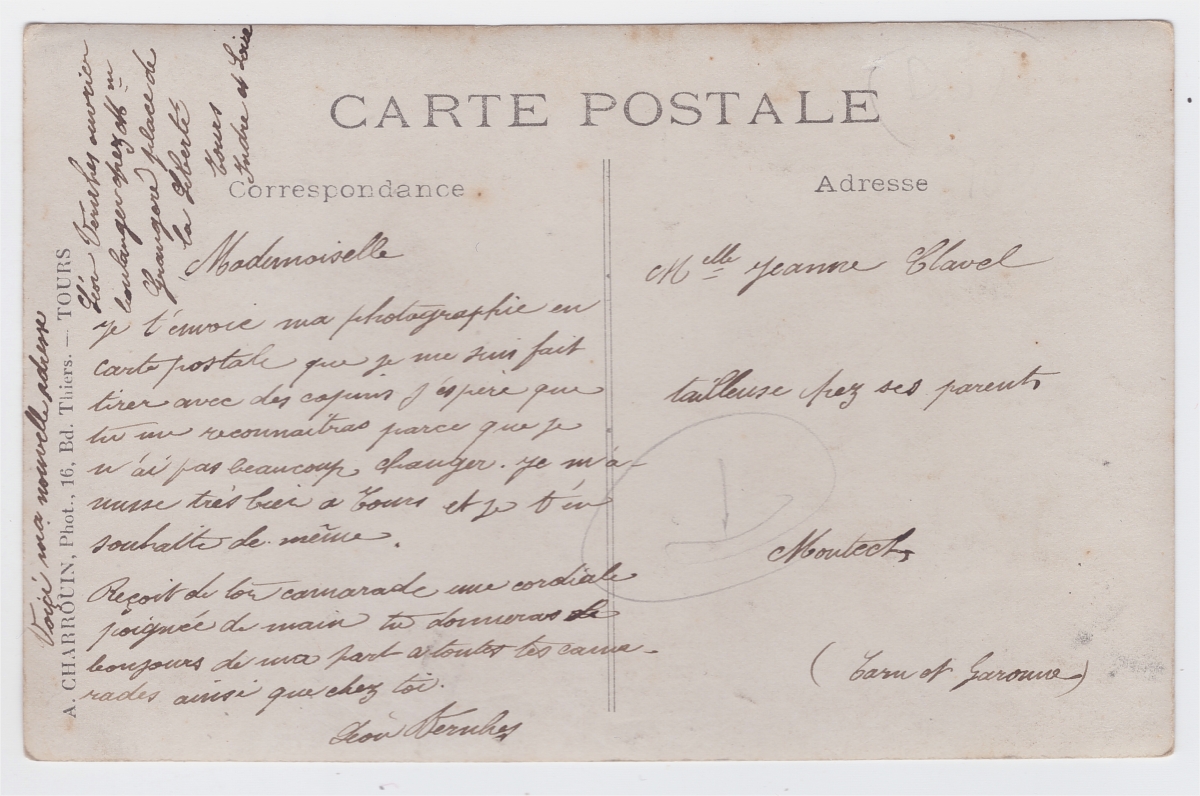 CARTE POSTALE
Correspondance
Adresse
A. CHARROUIN, Phot., 16, Bd. Thiers. — TOURS
Voiçi ma nouvelle adresse
Léon Vernhes ouvrier
boulanger chez Mm
Grangeré place de
la Liberté
Tours
Indre et Loire
Mademoiselle
je t'envoie ma photographie en
carte postale que je me suis fait
tirer avec des copins j'éspere que
tu me reconnaîtras parce que je
n'ai pas beaucoup changer. je m'a-
musse très bien a Tours et je t'en
souhaitte de même.
Reçoit de ton camarade une cordiale
poignée de main tu donneras le
bonjours de ma part a toutes tes cama-
rades ainsi que chez toi.
Léon Vernhes
Melle Jeanne Clavel
tailleuse chez ses parents
Montech
(Tarn et Garonne)